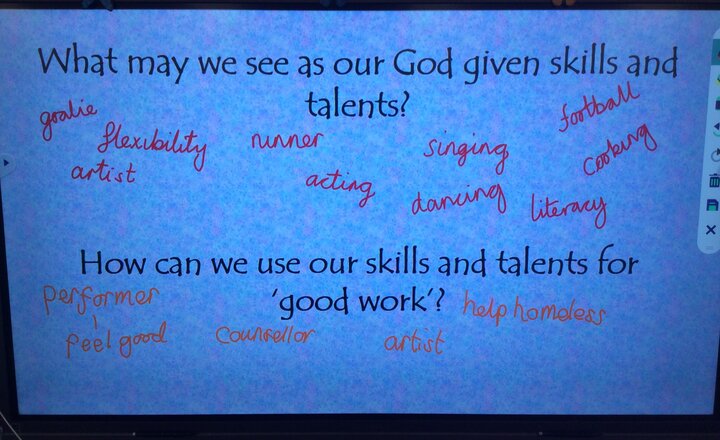 What may we see as our God given skills and
talents?
goalie
flexibility
runner
singing
football
cooking
artist
acting
dancing
literacy
How can we use our skills and talents for
'good work'?
performer
feel good
counsellor
artist
help homeless